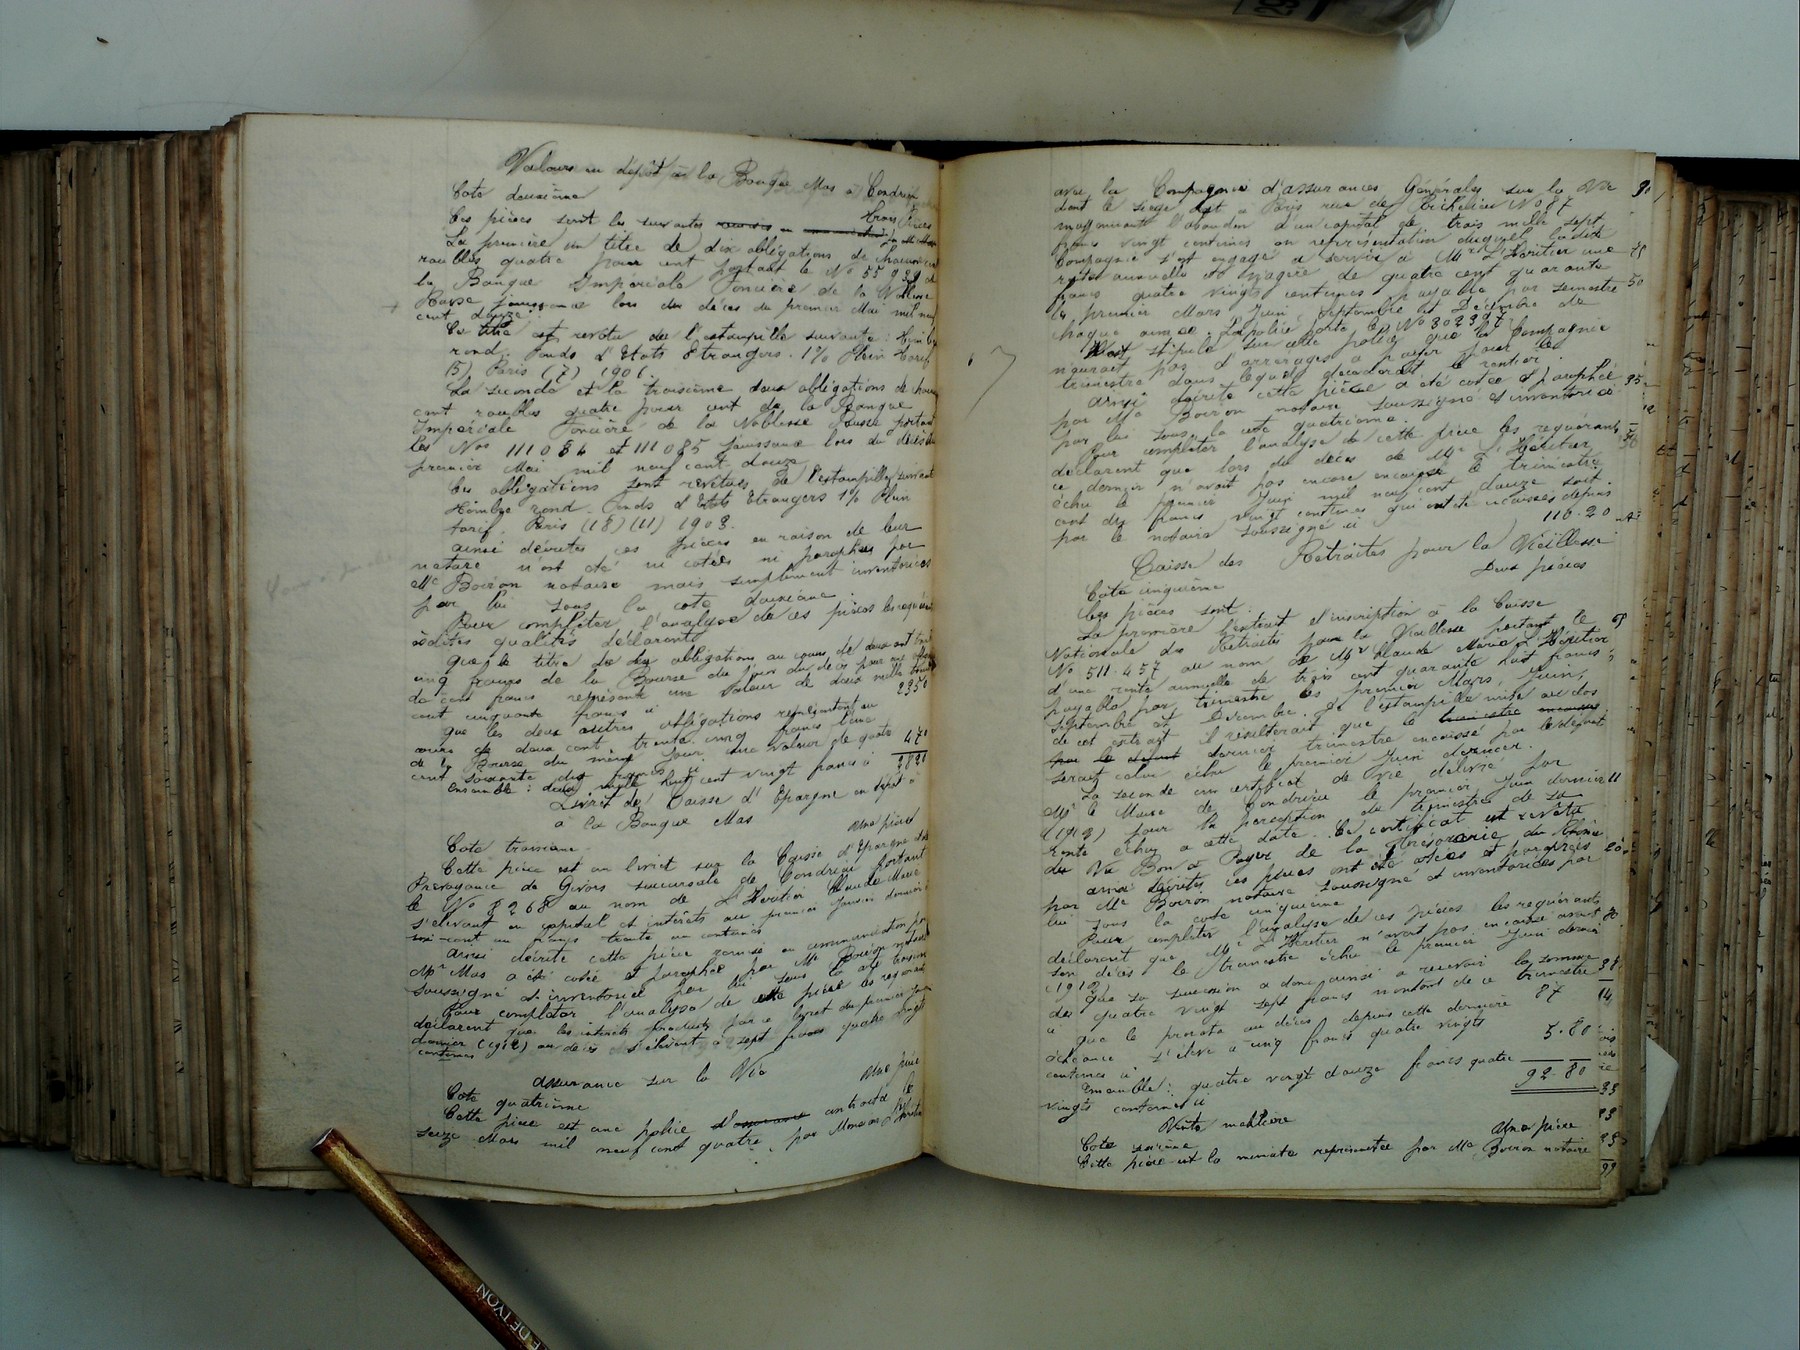 Valeurs en dépôt à la Banque Mas à Condrieu
Cote deuxième
Ces pièces sont les suivantes
trois pièces
La première un titre de dix obligations de chacune cent
roubles quatre pour cent portant le No 55939 de
la Banque Impériale Foncière de la Noblesse
Russe jouissance lors du décès du premier Mai mil neuf
cent douze.
Ce titre est revêtu de l'estampille suivante : timbre
rond. Fonds d'Etats Etrangers. 1% Plein tarif
(5) Paris (7) 1901.
La seconde et la troisième deux obligations de chacune
cent roubles quatre pour cent de la Banque
Impériale Foncière de la Noblesse Russe portant
les Nos 111084 et 111085 jouissance lors du décès du
premier Mai mil neuf cent douze
Ces obligations sont revêtues de l'estampille suivante
timbre rond. Fonds d'Etats Etrangers 1% Plein
tarif. Paris (18) (11) 1908.
Ainsi décrites ces pièces en raison de leur
nature n'ont été ni cotées ni paraphées par
Me Boiron notaire mais simplement inventoriées
par lui sous la cote deuxième.
Pour compléter l'analyse de ces pièces les requérants
èsdites qualités déclarent
Que le titre de dix obligations au cours de deux cent trente
cinq francs de la Bourse du jour du décès pour une
de cent francs représente une valeur de deux mille trois
cent cinquante francs ci 2350
Que les deux autres obligations représentent au
cours de deux cent trente cinq francs l'une
de la Bourse du même jour une valeur de quatre
cent soixante dix francs ci 470
Ensemble : deux mille huit cent vingt francs ci 2820
Livret de Caisse d'Epargne en dépôt
à la Banque Mas
Cote troisième Une pièce
Cette pièce est un livret sur la Caisse d'Epargne et de
Prévoyance de Givors succursale de Condrieu portant
le No 8268 au nom de L'Héritier Claude Marie
s'élevant en capital et intérêts au premier Janvier dernier
cent un francs trente un centimes
Ainsi décrite cette pièce remise en communication par
Mr Mas a été cotée et paraphée par Me Boiron notaire
soussigné et inventoriée par lui sous la cote troisième
Pour compléter l'analyse de cette pièce les requérants
déclarent que les intérêts produits par ce livret du premier Janvier
dernier (1912) au décès s'élèvent à sept francs quatre vingt
centimes
Assurance sur la Vie
Cote quatrième Une pièce
Cette pièce est une police d'assurance contractée le
seize Mars mil neuf cent quatre, par Monsieur L'Héritier
avec la Compagnie d'assurances Générales sur la Vie
dont le siège est à Paris rue de Richelieu No 87
moyennant l'abandon d'un capital de trois mille sept
francs vingt centimes en représentation duquel ladite
Compagnie s'est engagée à servir à Mr L'Héritier une
rente annuelle et viagère de quatre cent quarante
francs quatre vingts centimes payable par semestre
les premier Mars Juin, Septembre et Décembre de
chaque année. La police porte le No 302397
Il est stipulé sur cette police que la Compagnie
n'aurait pas d'arrérages à payer pour le
trimestre dans lequel décéderait le rentier.
Ainsi décrite cette pièce a été cotée et paraphée
par Me Boiron notaire soussigné et inventoriée
par lui sous la cote quatrième.
Pour compléter l'analyse de cette pièce les requérants
déclarent que lors du décès de Mr L'Héritier
ce dernier n'avait pas encore encaissé le trimestre
échu le premier Juin mil neuf cent douze soit
cent dix francs vingt centimes qui ont été encaissés depuis
par le notaire soussigné ci 110.20
Caisse des Retraites pour la Vieillesse
Cote cinquième Deux pièces
Ces pièces sont :
La première l'extrait d'inscription à la Caisse
Nationale des Retraites pour la Vieillesse portant le
No 511.457 au nom de Mr Claude Marie L'Héritier
d'une rente annuelle de trois cent quarante huit francs
payable par trimestre les premier Mars, Juin,
Septembre et Décembre. De l'estampille mise au dos
de cet extrait il résulterait que le trimestre encaissé
par le défunt dernier trimestre encaissé par le défunt
serait celui échu le premier Juin dernier.
La seconde un certificat de vie délivré par
Mr le Maire de Condrieu le premier Juin dernier
(1912) pour la perception du trimestre de la
rente échu à cette date. Ce certificat est revêtu
du Vu Bon à Payer de la Trésorerie du Rhône
Ainsi décrites ces pièces ont été cotées et paraphées
par Me Boiron notaire soussigné et inventoriées par
lui sous la cote cinquième
Pour compléter l'analyse de ces pièces les requérants
déclarent que Mr L'Héritier n'avait pas encaissé avant
son décès le trimestre échu le premier Juin dernier
(1912)
Que sa succession a donc ainsi à recevoir la somme
de quatre vingt sept francs montant de ce trimestre
ci 87
Que le prorata au décès depuis cette dernière
échéance s'élève à cinq francs quatre vingts
centimes ci 5.80
Ensemble : quatre vingt douze francs quatre
vingts centimes ci 92.80
Vente mobilière
Cote sixième Une pièce
Cette pièce est la minute représentée par Me Boiron notaire
DE LYON